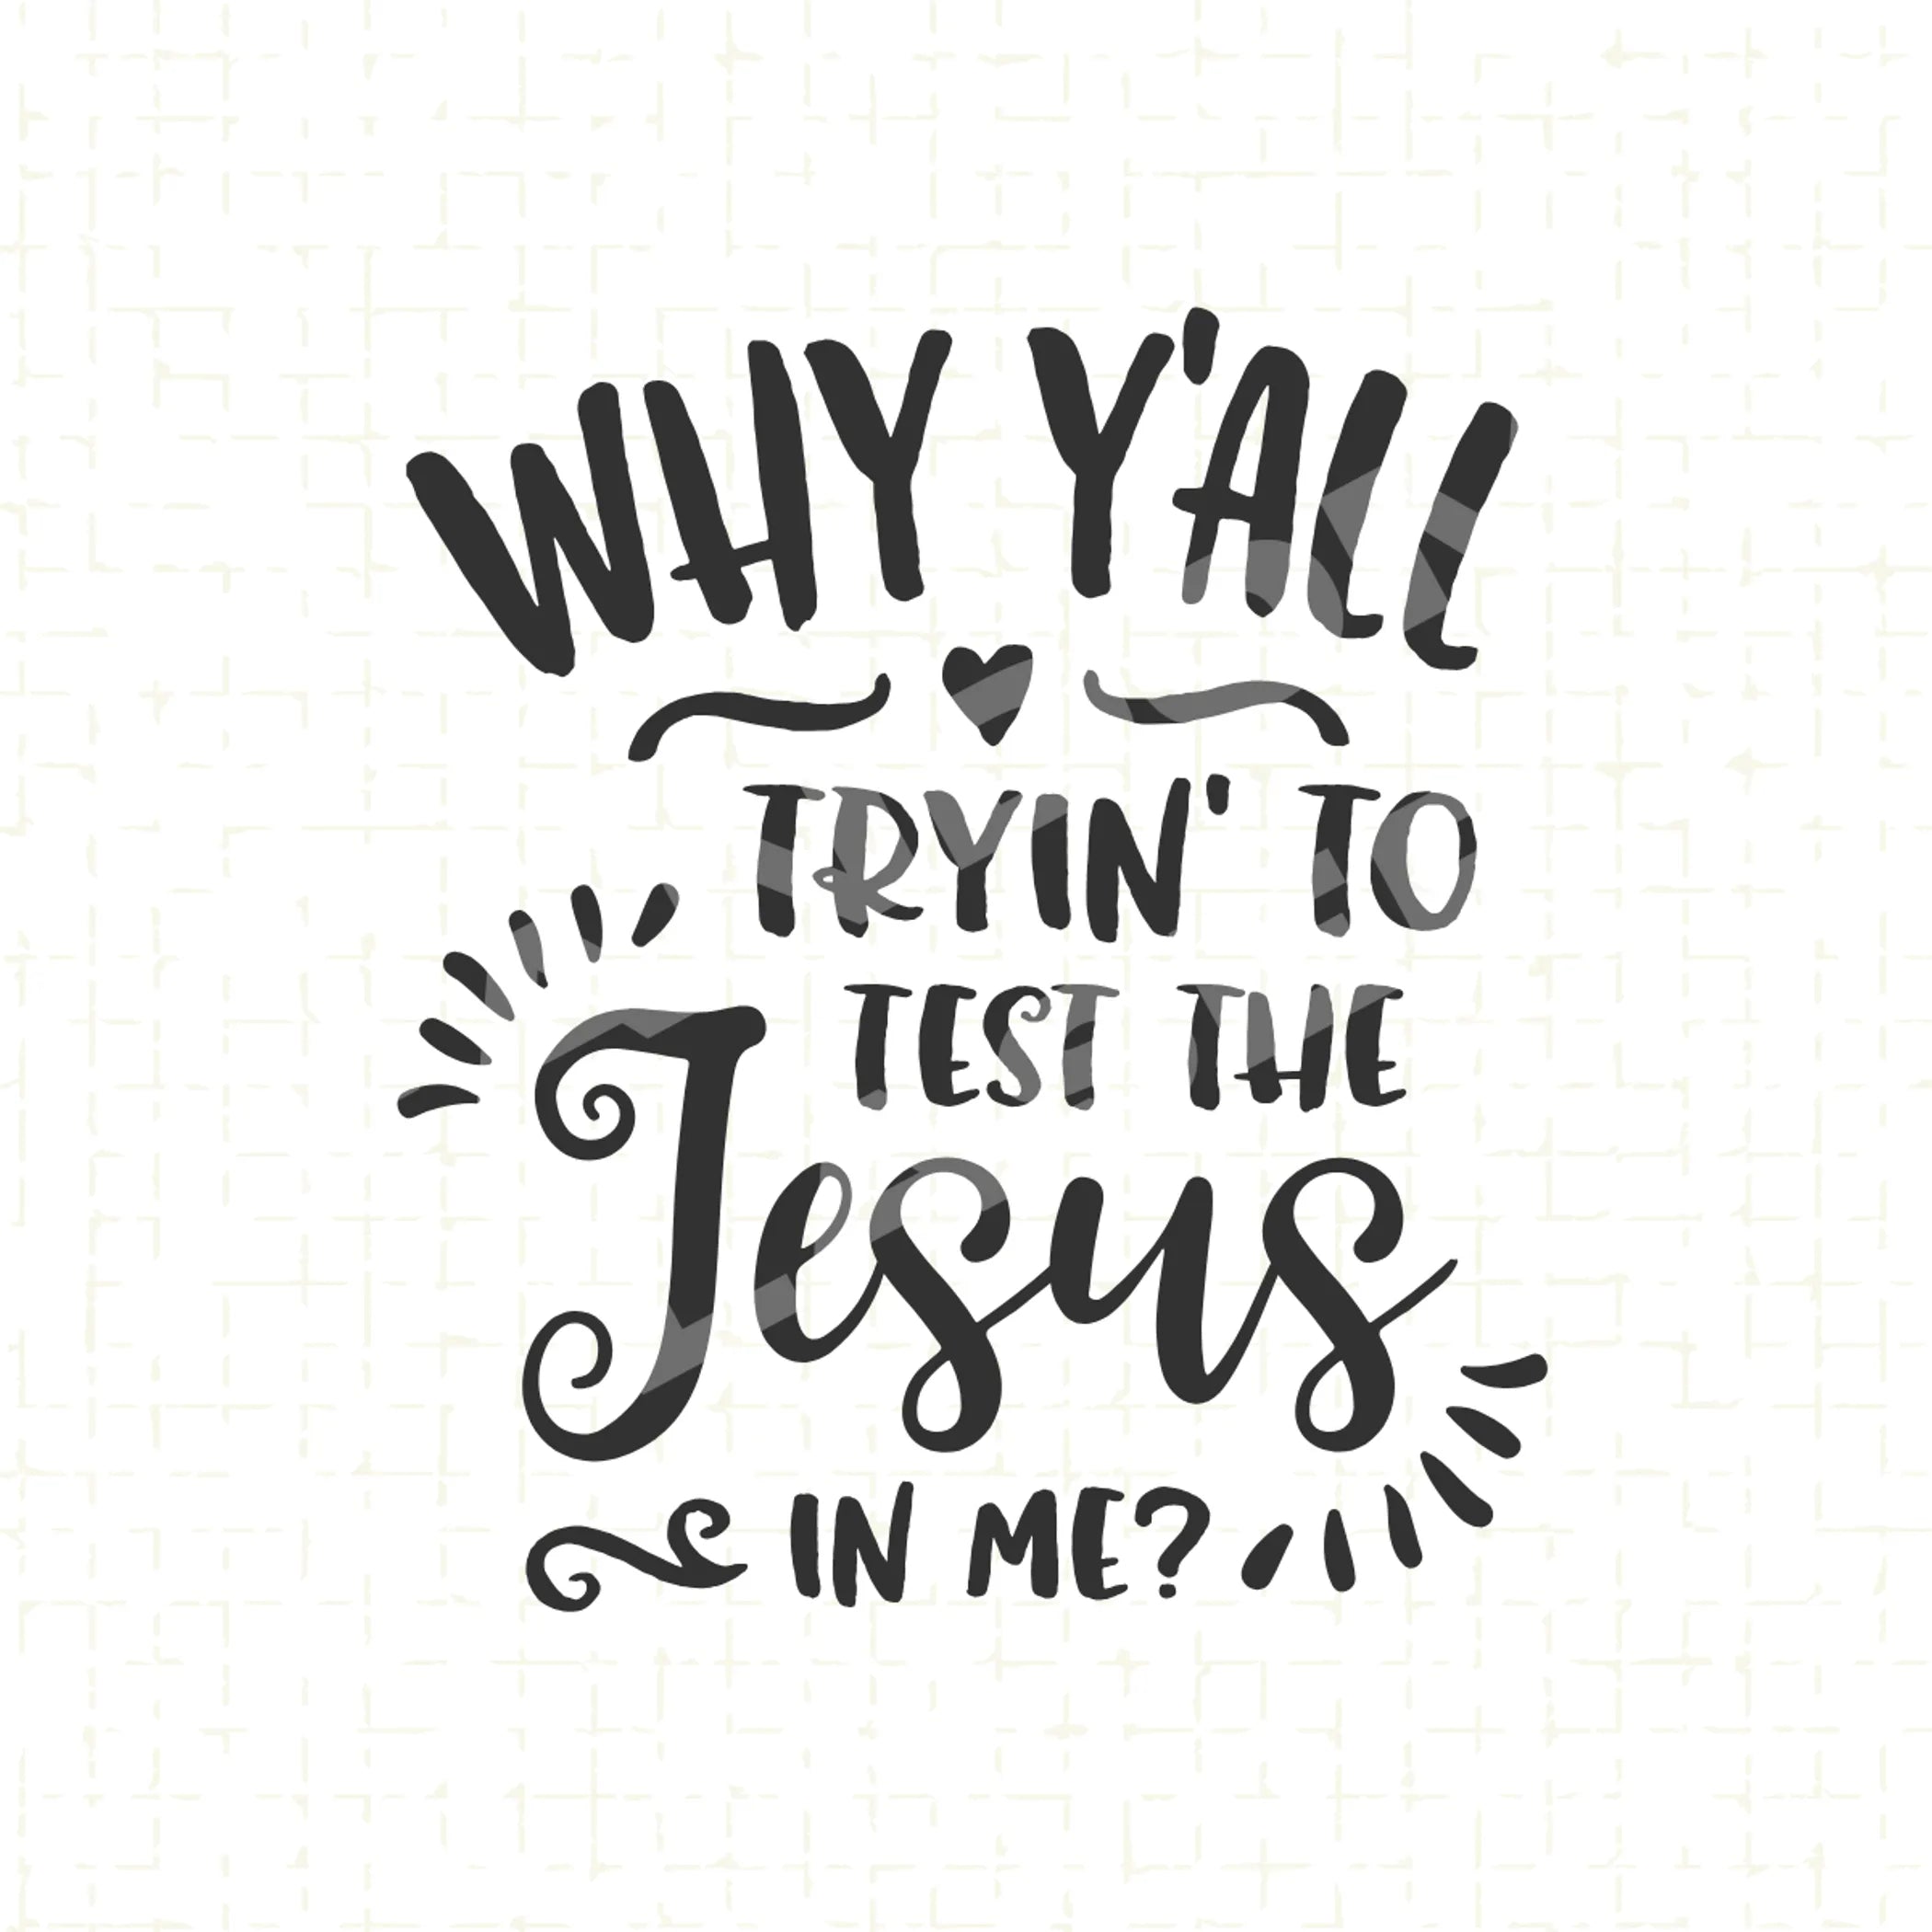 WHY Y'ALL
TRYIN' TO
TEST THE
Jesus
IN ME?